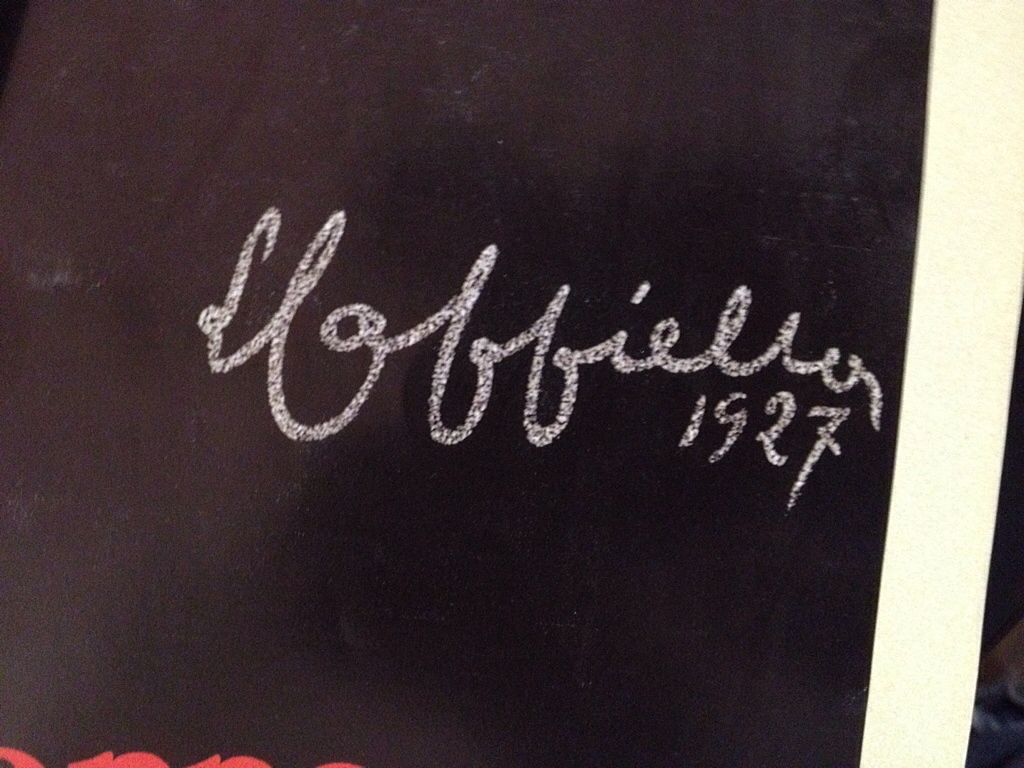 L Cappiello
1927